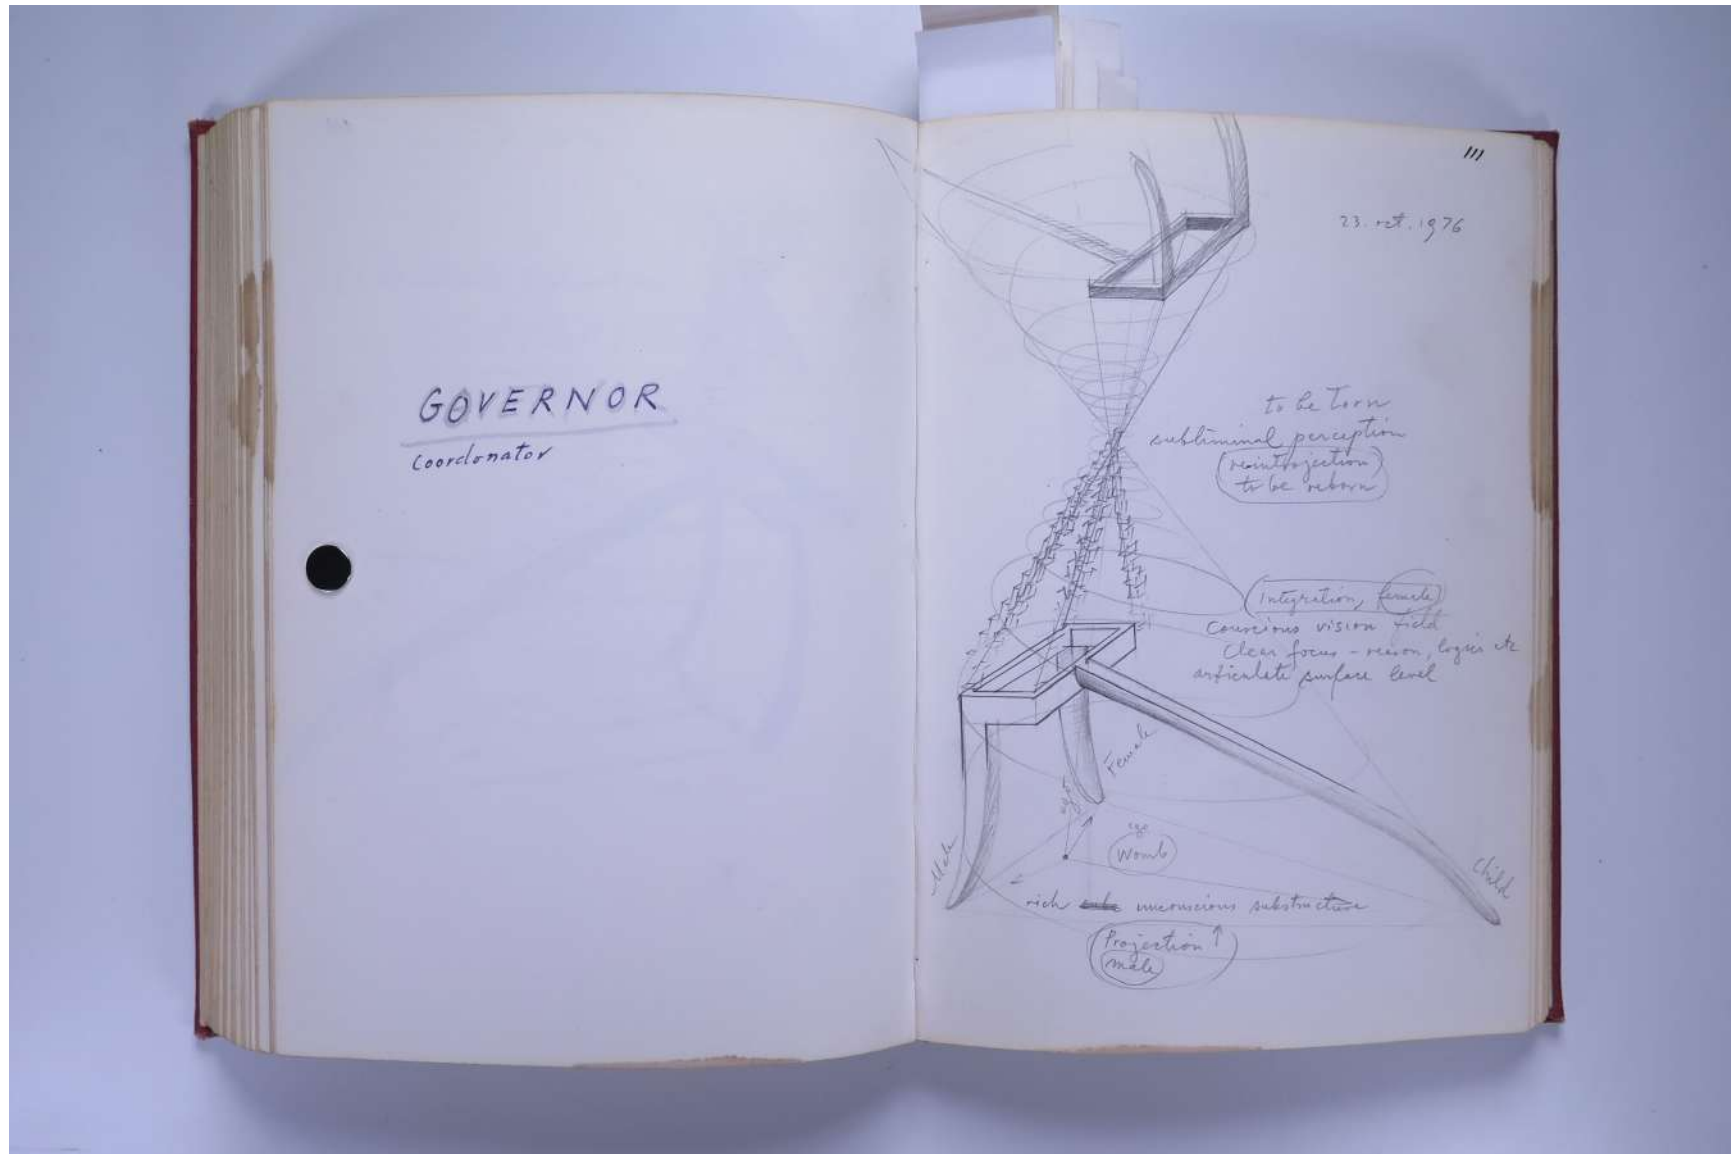 GOVERNOR
Coordonator
111
23. oct. 1976
to be torn
subliminal perception
(reintrojection)
to be reborn
Integration, female
Conscious vision field
Clear focus - reason, logic etc
articulate surface level
Female
ego
ego
Womb
Male
Child
rich unconscious substructure
Projection ↑
male